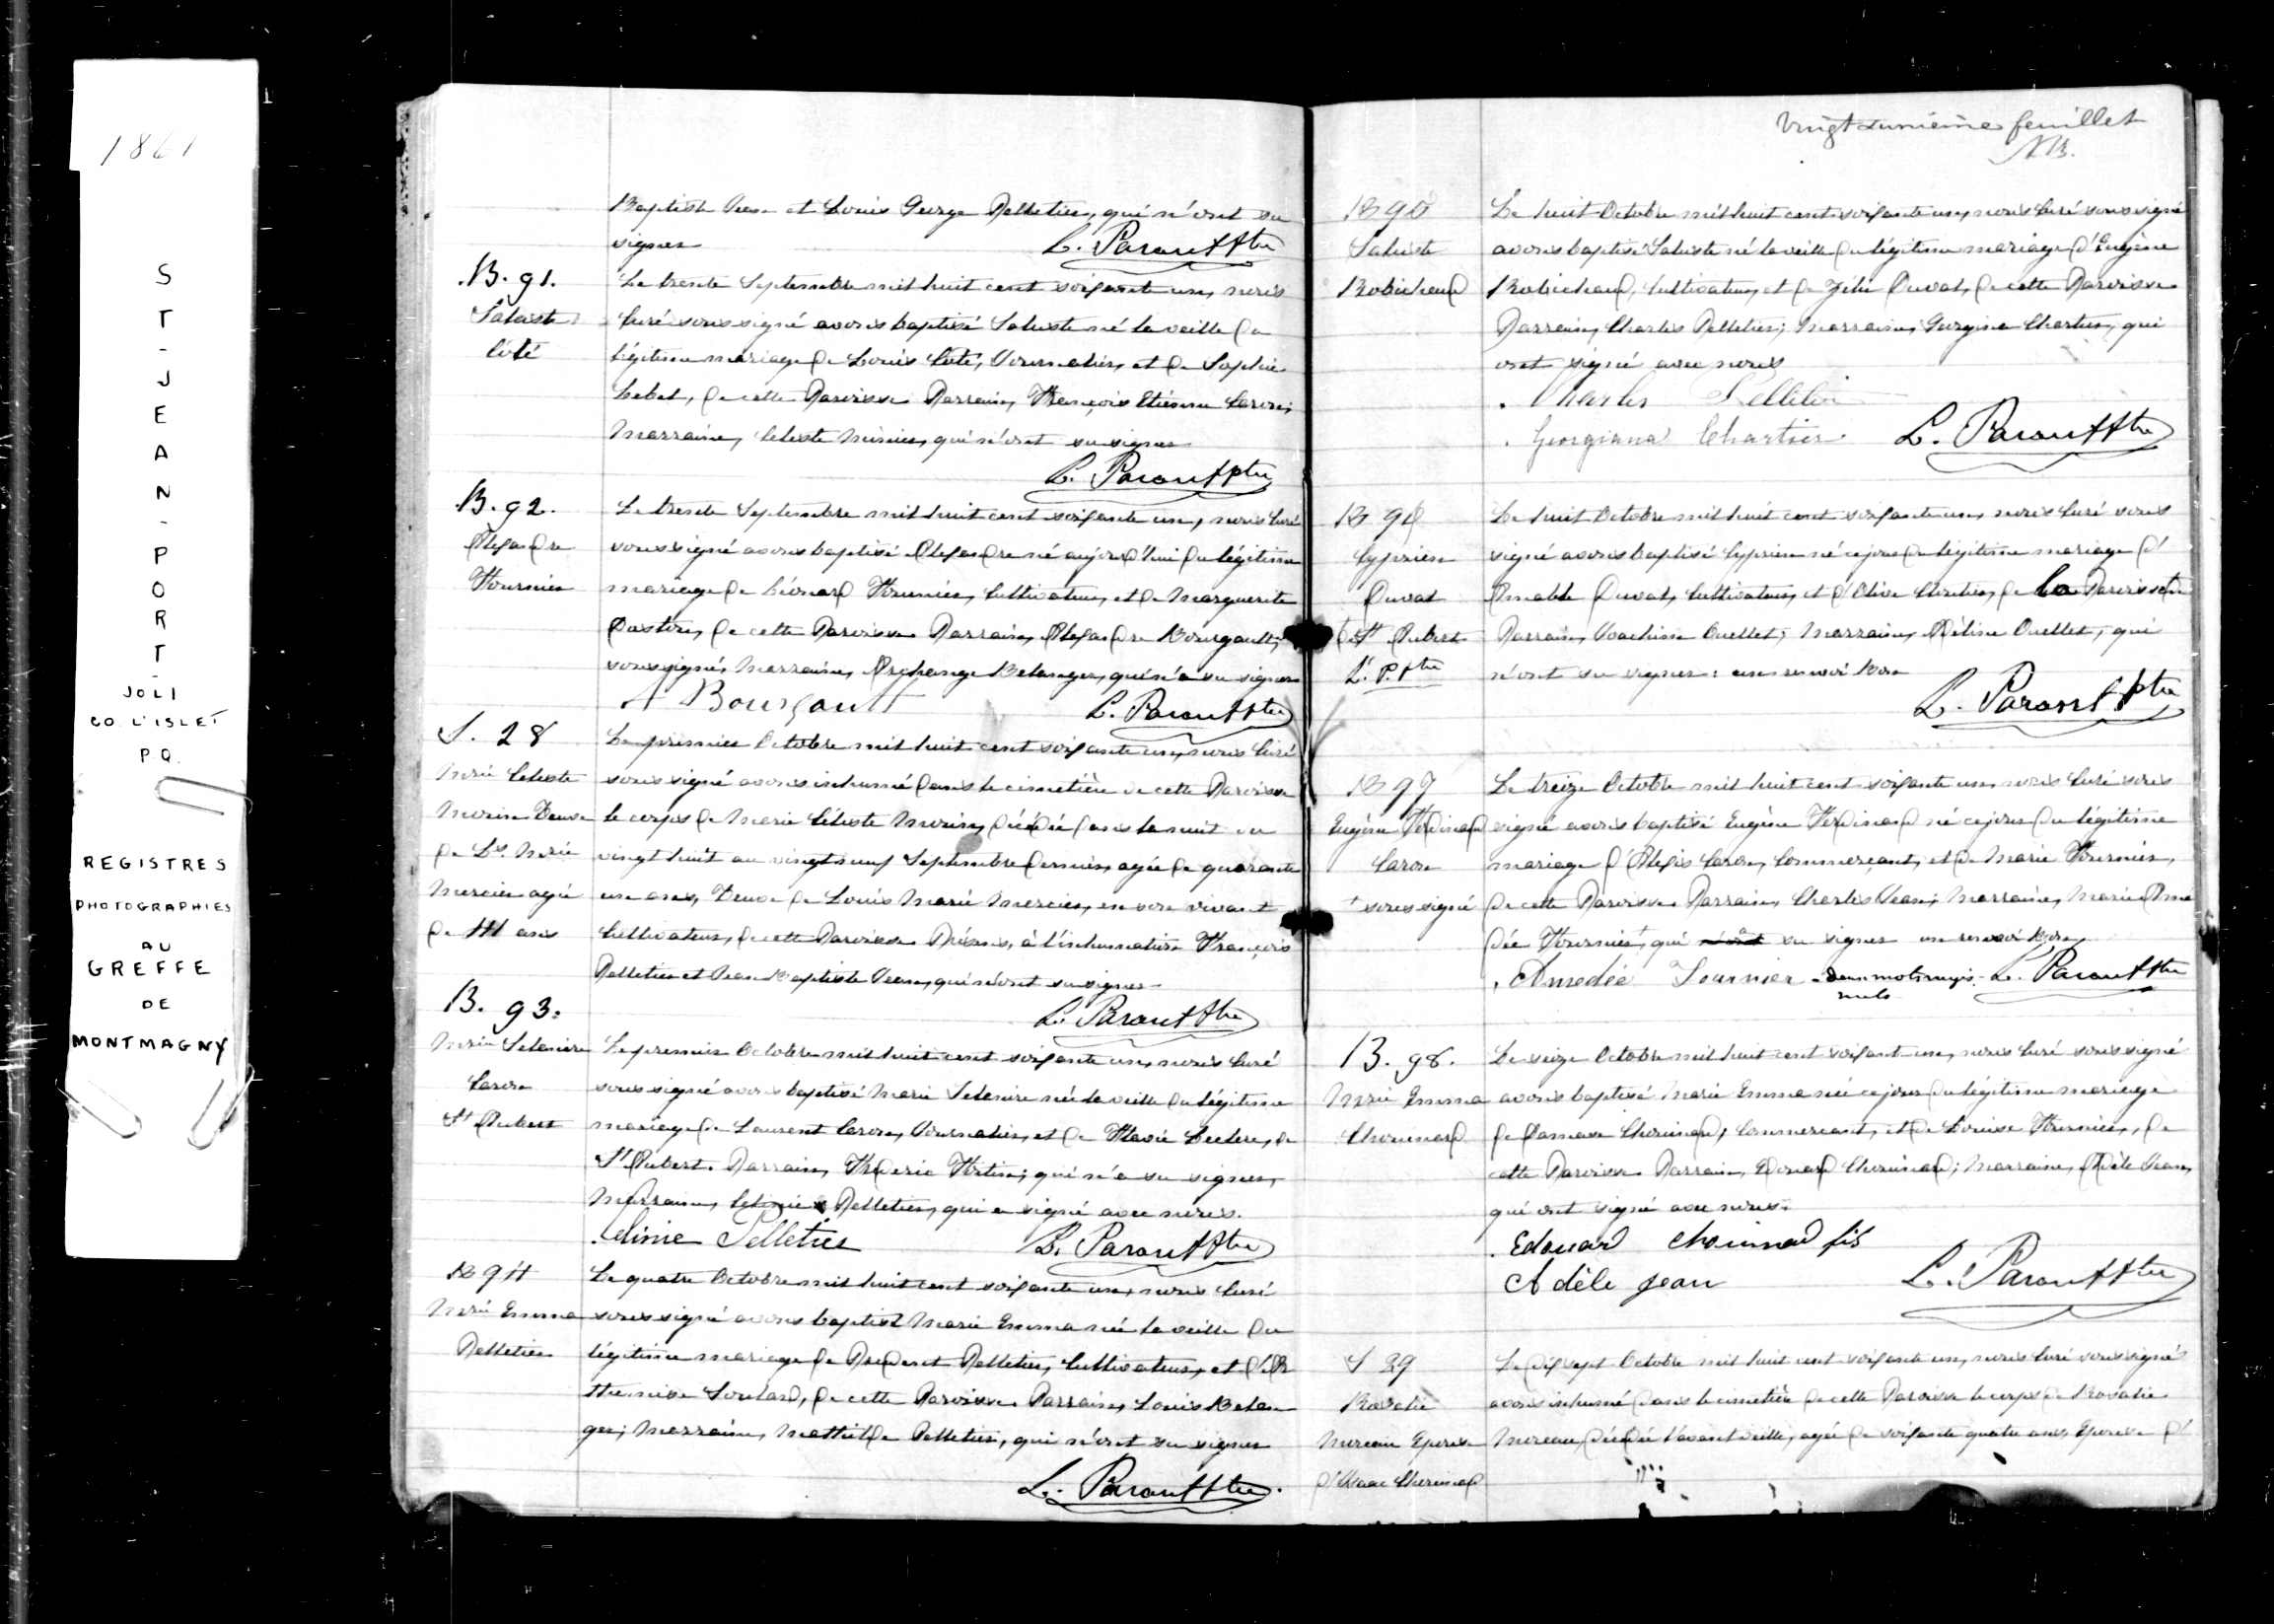 1861
ST-JEAN-PORT-
JOLI
CO L'ISLET
PQ.
REGISTRES
PHOTOGRAPHIES
AU
GREFFE
DE
MONTMAGNY
Baptiste et Louis George Pelletier, qui n'ont su
signer L. Parant Ptre
B. 91.
Saluste
Côté
Le trente Septembre mil huit cent soixante un, nous
Curé soussigné avons baptisé Saluste né la veille du
légitime mariage de Louis Côté, Journalier, et de Sophie
Lebel, de cette Paroisse Parrain, François Etienne Caron;
Marraine, Celeste qui n'ont su signer
L. Parant Ptre
B. 92.
Alexandre
Fournier
Le trente Septembre mil huit cent soixante un, nous Curé
soussigné avons baptisé Alexandre né aujourd'hui du légitime
mariage de Léonard Fournier, Cultivateur, et de Marguerite
de cette Paroisse Parrain, Alexandre Bourgault,
soussigné, Marraine, Archange Belanger, qui n'a su signer
A Bourgault L. Parant Ptre
S. 28
Marie Celeste
Morin Veuve
de Ls. Marie
Mercier agée
de 41 ans
Le premier Octobre mil huit cent soixante un, nous Curé
soussigné avons inhumé dans le cimetière de cette Paroisse
le corps de Marie Céleste Morin, décédée dans la nuit du
vingt huit au vingt neuf Septembre dernier, agée de quarante
un ans, Veuve de Louis Marie Mercier, en son vivant
Cultivateur, de cette Paroisse Présens, à l'inhumation François
Pelletier et Jean Baptiste qui n'ont su signer
L. Parant Ptre
B. 93.
Marie Selanire
Caron
St Aubert
Le premier Octobre mil huit cent soixante un, nous Curé
soussigné avons baptisé Marie Selanire née la veille du légitime
mariage de Laurent Caron, Journalier, et de Flavie Leclerc, de
St Aubert. Parrain, Frederic qui n'a su signer,
Marraine, Celinie Pelletier, qui a signé avec nous.
Celinie Pelletier L. Parant Ptre
B 94
Marie Emma
Pelletier
Le quatre Octobre mil huit cent soixante un, nous Curé
soussigné avons baptisé Marie Emma née la veille du
légitime mariage de Prudent Pelletier, Cultivateur, et d'Ar
themise Soulard, de cette Paroisse Parrain, Louis Belan
ger; Marraine, Mathilde Pelletier, qui n'ont su signer
L. Parant Ptre.
Vingt unième feuillet
B 95
Saluste
Robichaud
Le huit Octobre mil huit cent soixante un, nous Curé soussigné
avons baptisé Saluste né la veille du légitime mariage d'Eugène
Robichaud, Cultivateur, et de Zélie Duval, de cette Paroisse
Parrain, Charles Pelletier; Marraine, Chartier, qui
ont signé avec nous
Charles Pelletier
Georgiana Chartier L. Parant Ptre
B 96
Cyprien
Duval
de St Aubert
L. P. Ptre
Le huit Octobre mil huit cent soixante un, nous Curé sous
signé avons baptisé Cyprien né ce jour du légitime mariage d'
Amable Duval, Cultivateur, et d'Olive de la Paroisse
Parrain, Joachim Ouellet; Marraine, Ouellet, qui
n'ont su signer: un renvoi bon
L. Parant Ptre
B 97
Eugène Ferdinand
Caron
+ soussigné
Le treize Octobre mil huit cent soixante un, nous Curé sous
signé avons baptisé Eugène Ferdinand né ce jour du légitime
mariage d'Alexis Caron, Commerçant, et de Marie Fournier,
de cette Paroisse Parrain, Charles Jean; Marraine, Marie Amé
dée Fournier + qui n'ont su signer un renvoi bon
Amedée Fournier deux mots rayés
nuls L. Parant Ptre
B. 98.
Marie Emma
Chouinard
Le seize Octobre mil huit cent soixante un, nous Curé soussigné
avons baptisé Marie Emma née ce jour du légitime mariage
de Damase Chouinard, Commerçant, et de Louise Fournier, de
cette Paroisse Parrain, Edouard Chouinard; Marraine, Adèle Jean,
qui ont signé avec nous.
Edouard Chouinard fils
Adèle Jean L. Parant Ptre
S 29
Rosalie
Moreau Epouse
d'Isaac Chouinard
Le dix sept Octobre mil huit cent soixante un, nous Curé soussigné
avons inhumé dans le cimetière de cette Paroisse le corps de Rosalie
Moreau, décédée l'avant veille, agée de soixante quatre ans Epouse d'